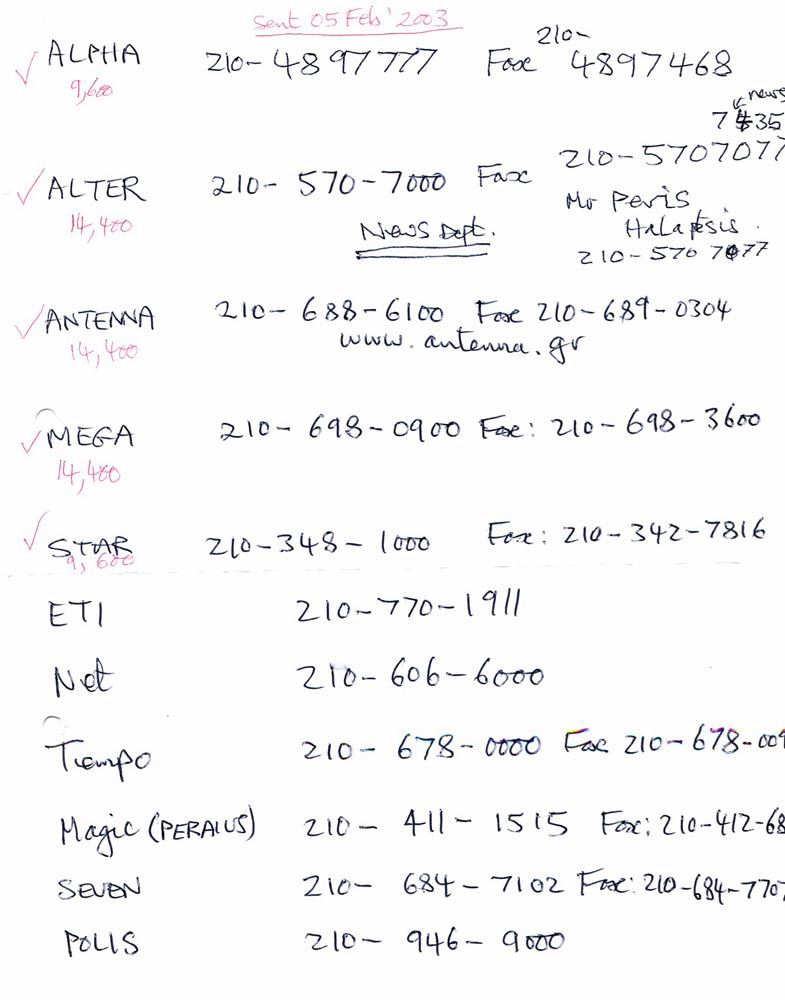 Sent 05 Feb' 2003
ALPHA 210-4897777 Fax 210-4897468
9,600
news
735
ALTER 210-570-7000 Fax 210-5707077
14,400
News Dept.
Mr Peris
210-570 7077
ANTENNA 210-688-6100 Fax 210-689-0304
14,400
www.antenna.gr
MEGA 210-698-0900 Fax: 210-698-3600
14,400
STAR 210-348-1000 Fax: 210-342-7816
9,600
ET1 210-770-1911
Net 210-606-6000
Tiempo 210-678-0000 Fax 210-678-00
Magic (PERAIUS) 210-411-1515 Fax: 210-412-68
SEVEN 210-684-7102 Fax: 210-684-770
POLIS 210-946-9000